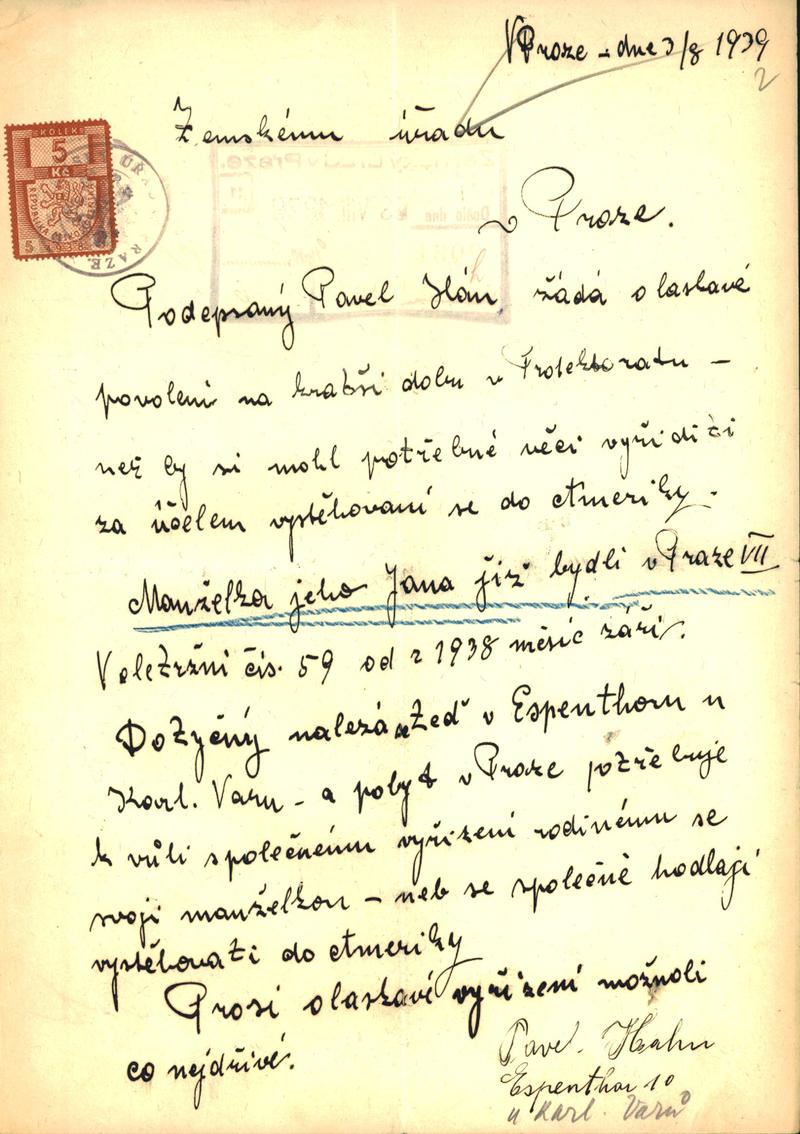 V Praze – dne 3/8 1939
2
Zemskému úřadu
KOLEK
5
Kč
v Praze.
Podepsaný Pavel Hán žádá o laskavé
povolení na kratší dobu v Protektoratu –
než by si mohl potřebné věci vyřiditi
za účelem vystěhovaní se do Ameriky.
Manželka jeho Jana již bydlí v Praze VII
Veletržní čís. 59 od r 1938 měsíc září.
Dotyčný nalezá se teď v Espenthoru u
Karl. Varu – a pobyt v Praze potřebuje
k vůli společnému vyřízení rodinému se
svoji manželkou – neb se společně hodlají
vystěhovati do Ameriky
Prosí o laskavé vyřízení možnoli
co nejdřívé.
Pavel Hahn
Espenthor 10
u Karl. Varů